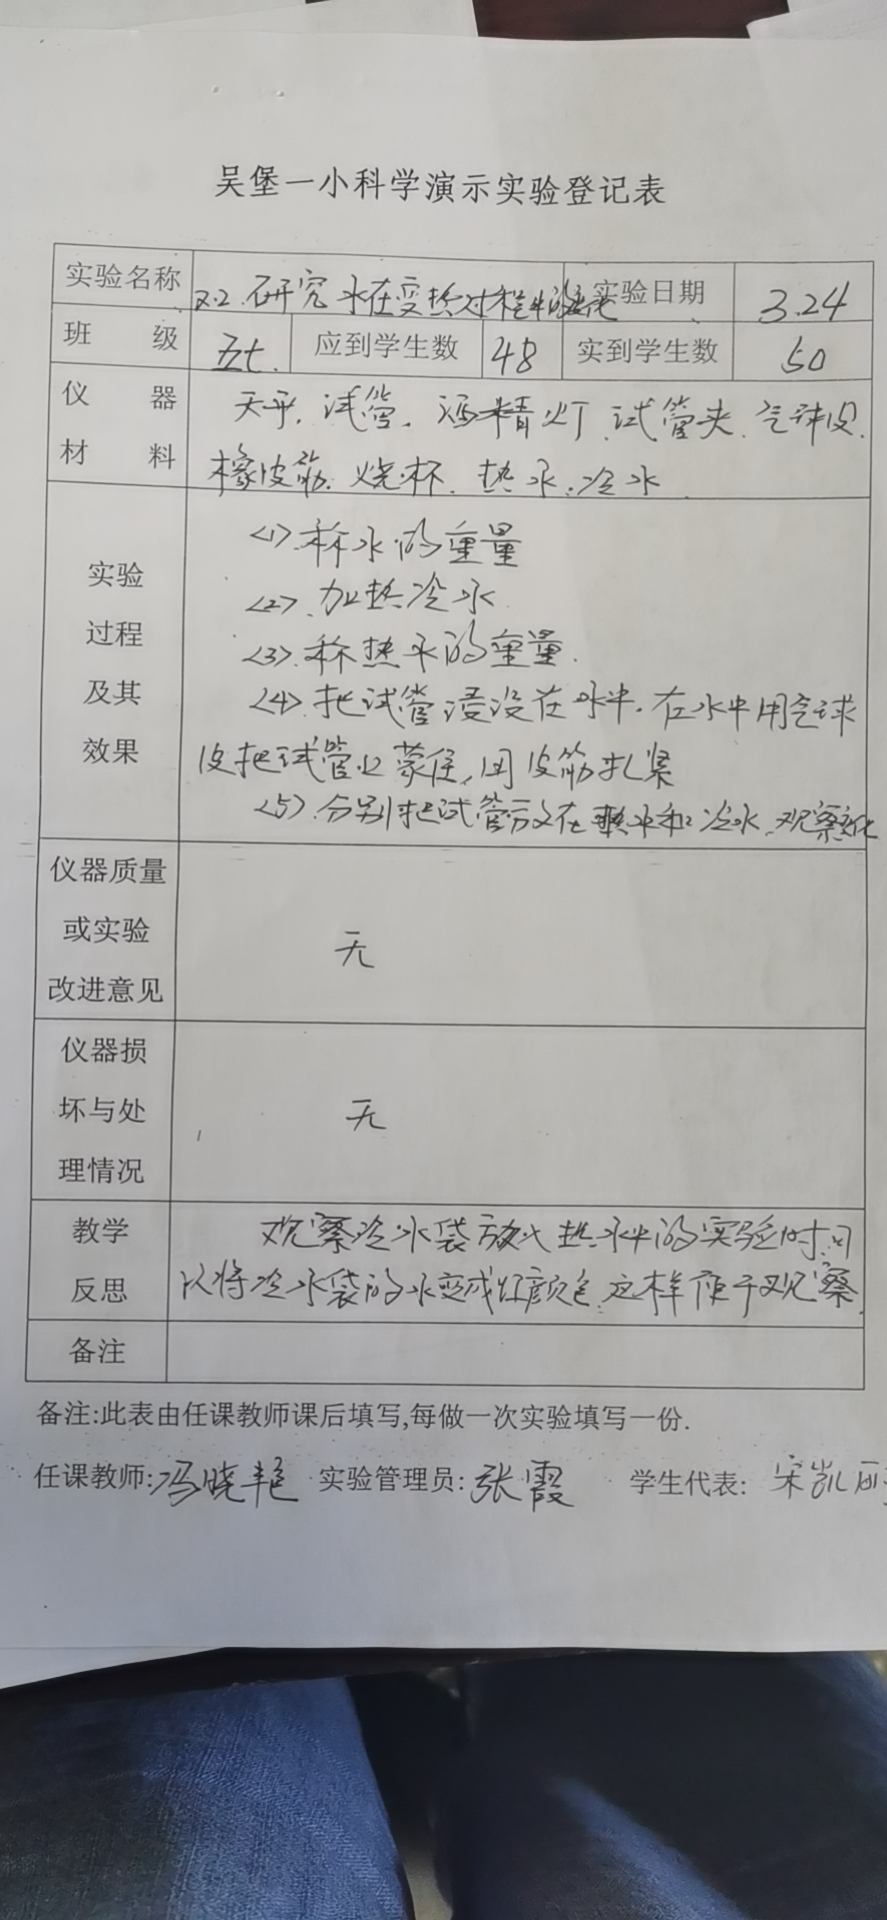 吴堡一小科学演示实验登记表
实验名称 2.2.研究水在变热过程中的变化 实验日期 3.24
班 级 五七. 应到学生数 48 实到学生数 50
仪 器 天平.试管.酒精灯.试管夹.气球皮.
材 料 橡皮筋.烧杯.热水.冷水
实验
过程
及其
效果
<1>.称水的重量
<2>.加热冷水
<3>.称热水的重量.
<4>.把试管浸没在水中.在水中用气球
皮把试管口蒙住,用皮筋扎紧
<5>.分别把试管放在热水和冷水.观察变化
仪器质量
或实验
改进意见
无
仪器损
坏与处
理情况
无
教学 观察冷水袋放入热水中的实验时.可
反思 以将冷水袋的水变成红颜色.这样便于观察.
备注
备注:此表由任课教师课后填写,每做一次实验填写一份.
任课教师:冯晓艳 实验管理员:张霞 学生代表: 宋凯